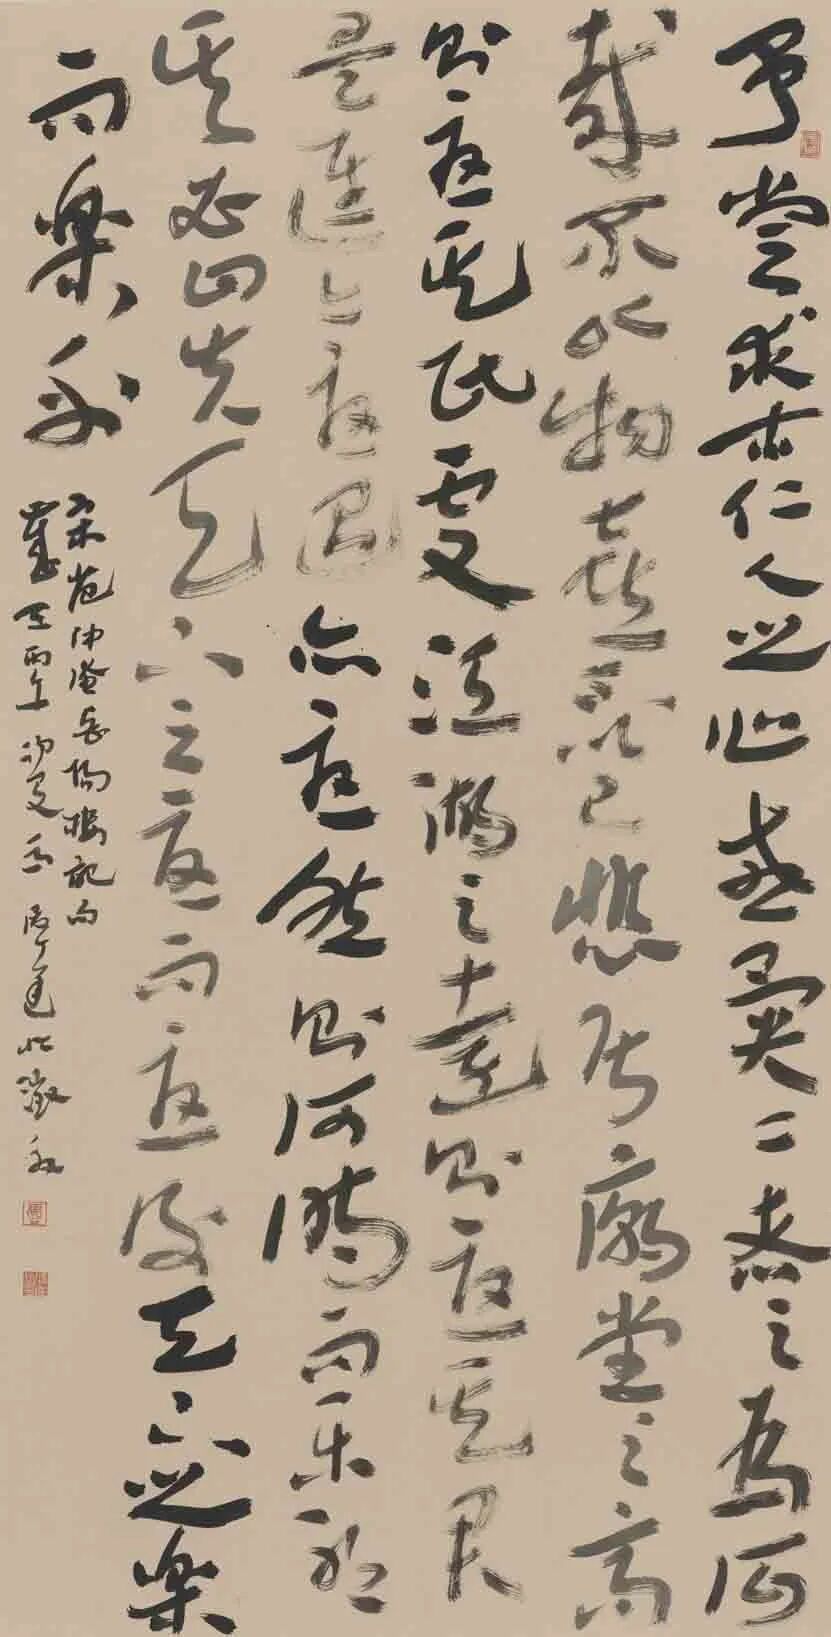 予嘗求古仁人之心或異二者之為何
哉不以物喜不以己悲居廟堂之高
則憂其民處江湖之遠則憂其君
是進亦憂退亦憂然則何時而樂耶
其必曰先天下之憂而憂後天下之樂
而樂乎
宋范仲淹岳陽樓記句
歲在丙午初夏